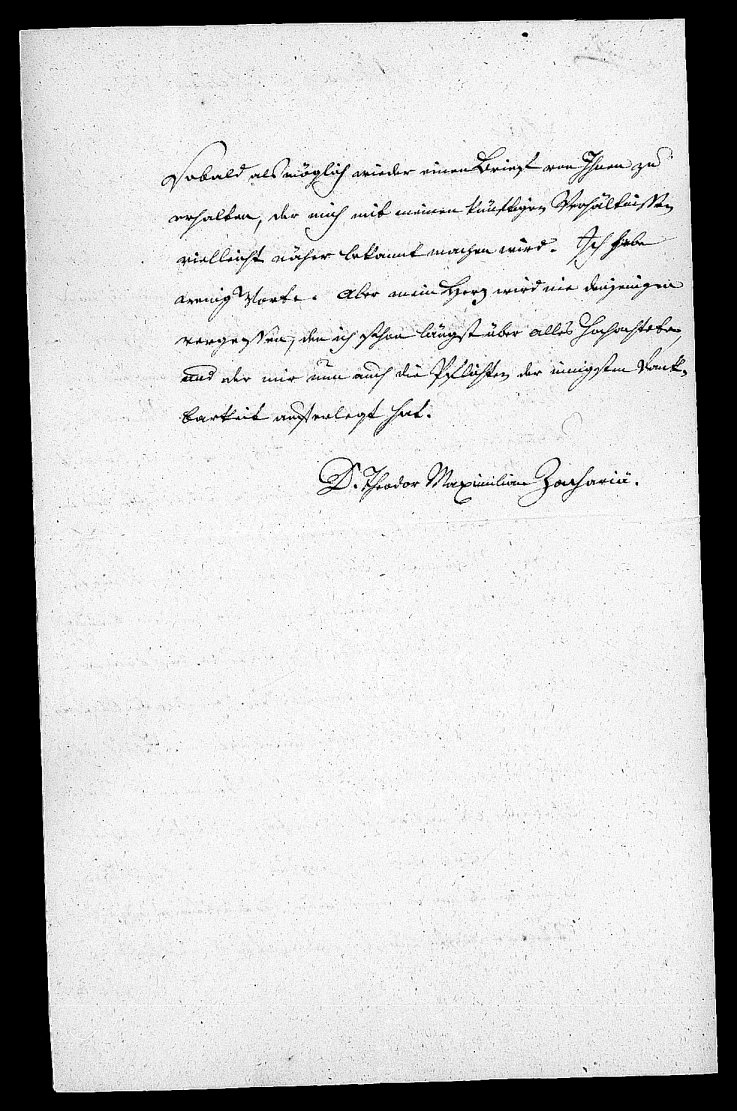 Sobald als möglich wieder einen Brief von Ihnen zu
erhalten, der mich mit meinen künftigen Verhältnissen
vielleicht näher bekannt machen wird. Ich habe
wenig Worte. Aber mein Herz wird nie denjenigen
vergessen, den ich schon längst über alles hochachtete,
und der mir nun auch die Pflichten der innigsten Dank-
barkeit auferlegt hat.
D. Theodor Maximilian Zachariä.